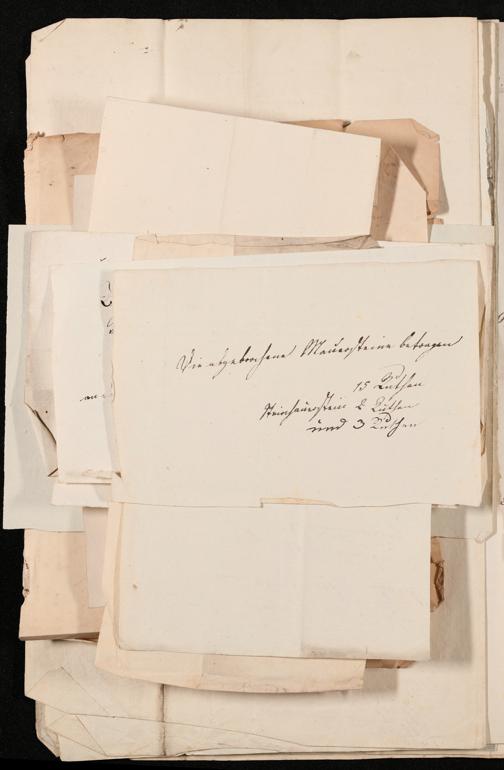 Die abgebrochene Mauersteine betragen
15 Ruthen
Steinhauerstein 2 Ruthen
und 3 Ruthen